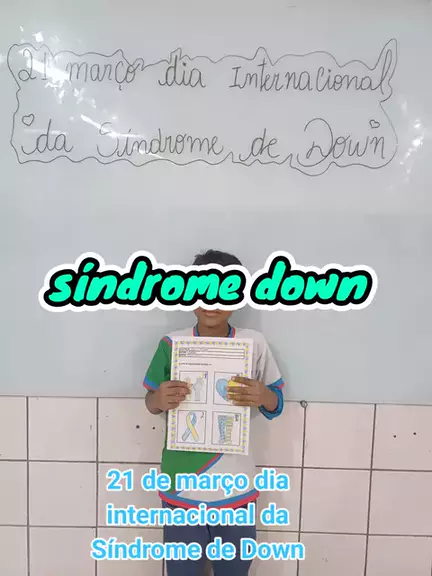 21 março dia Internacional
da Síndrome de Down
síndrome down
21 de março dia
internacional da
Síndrome de Down